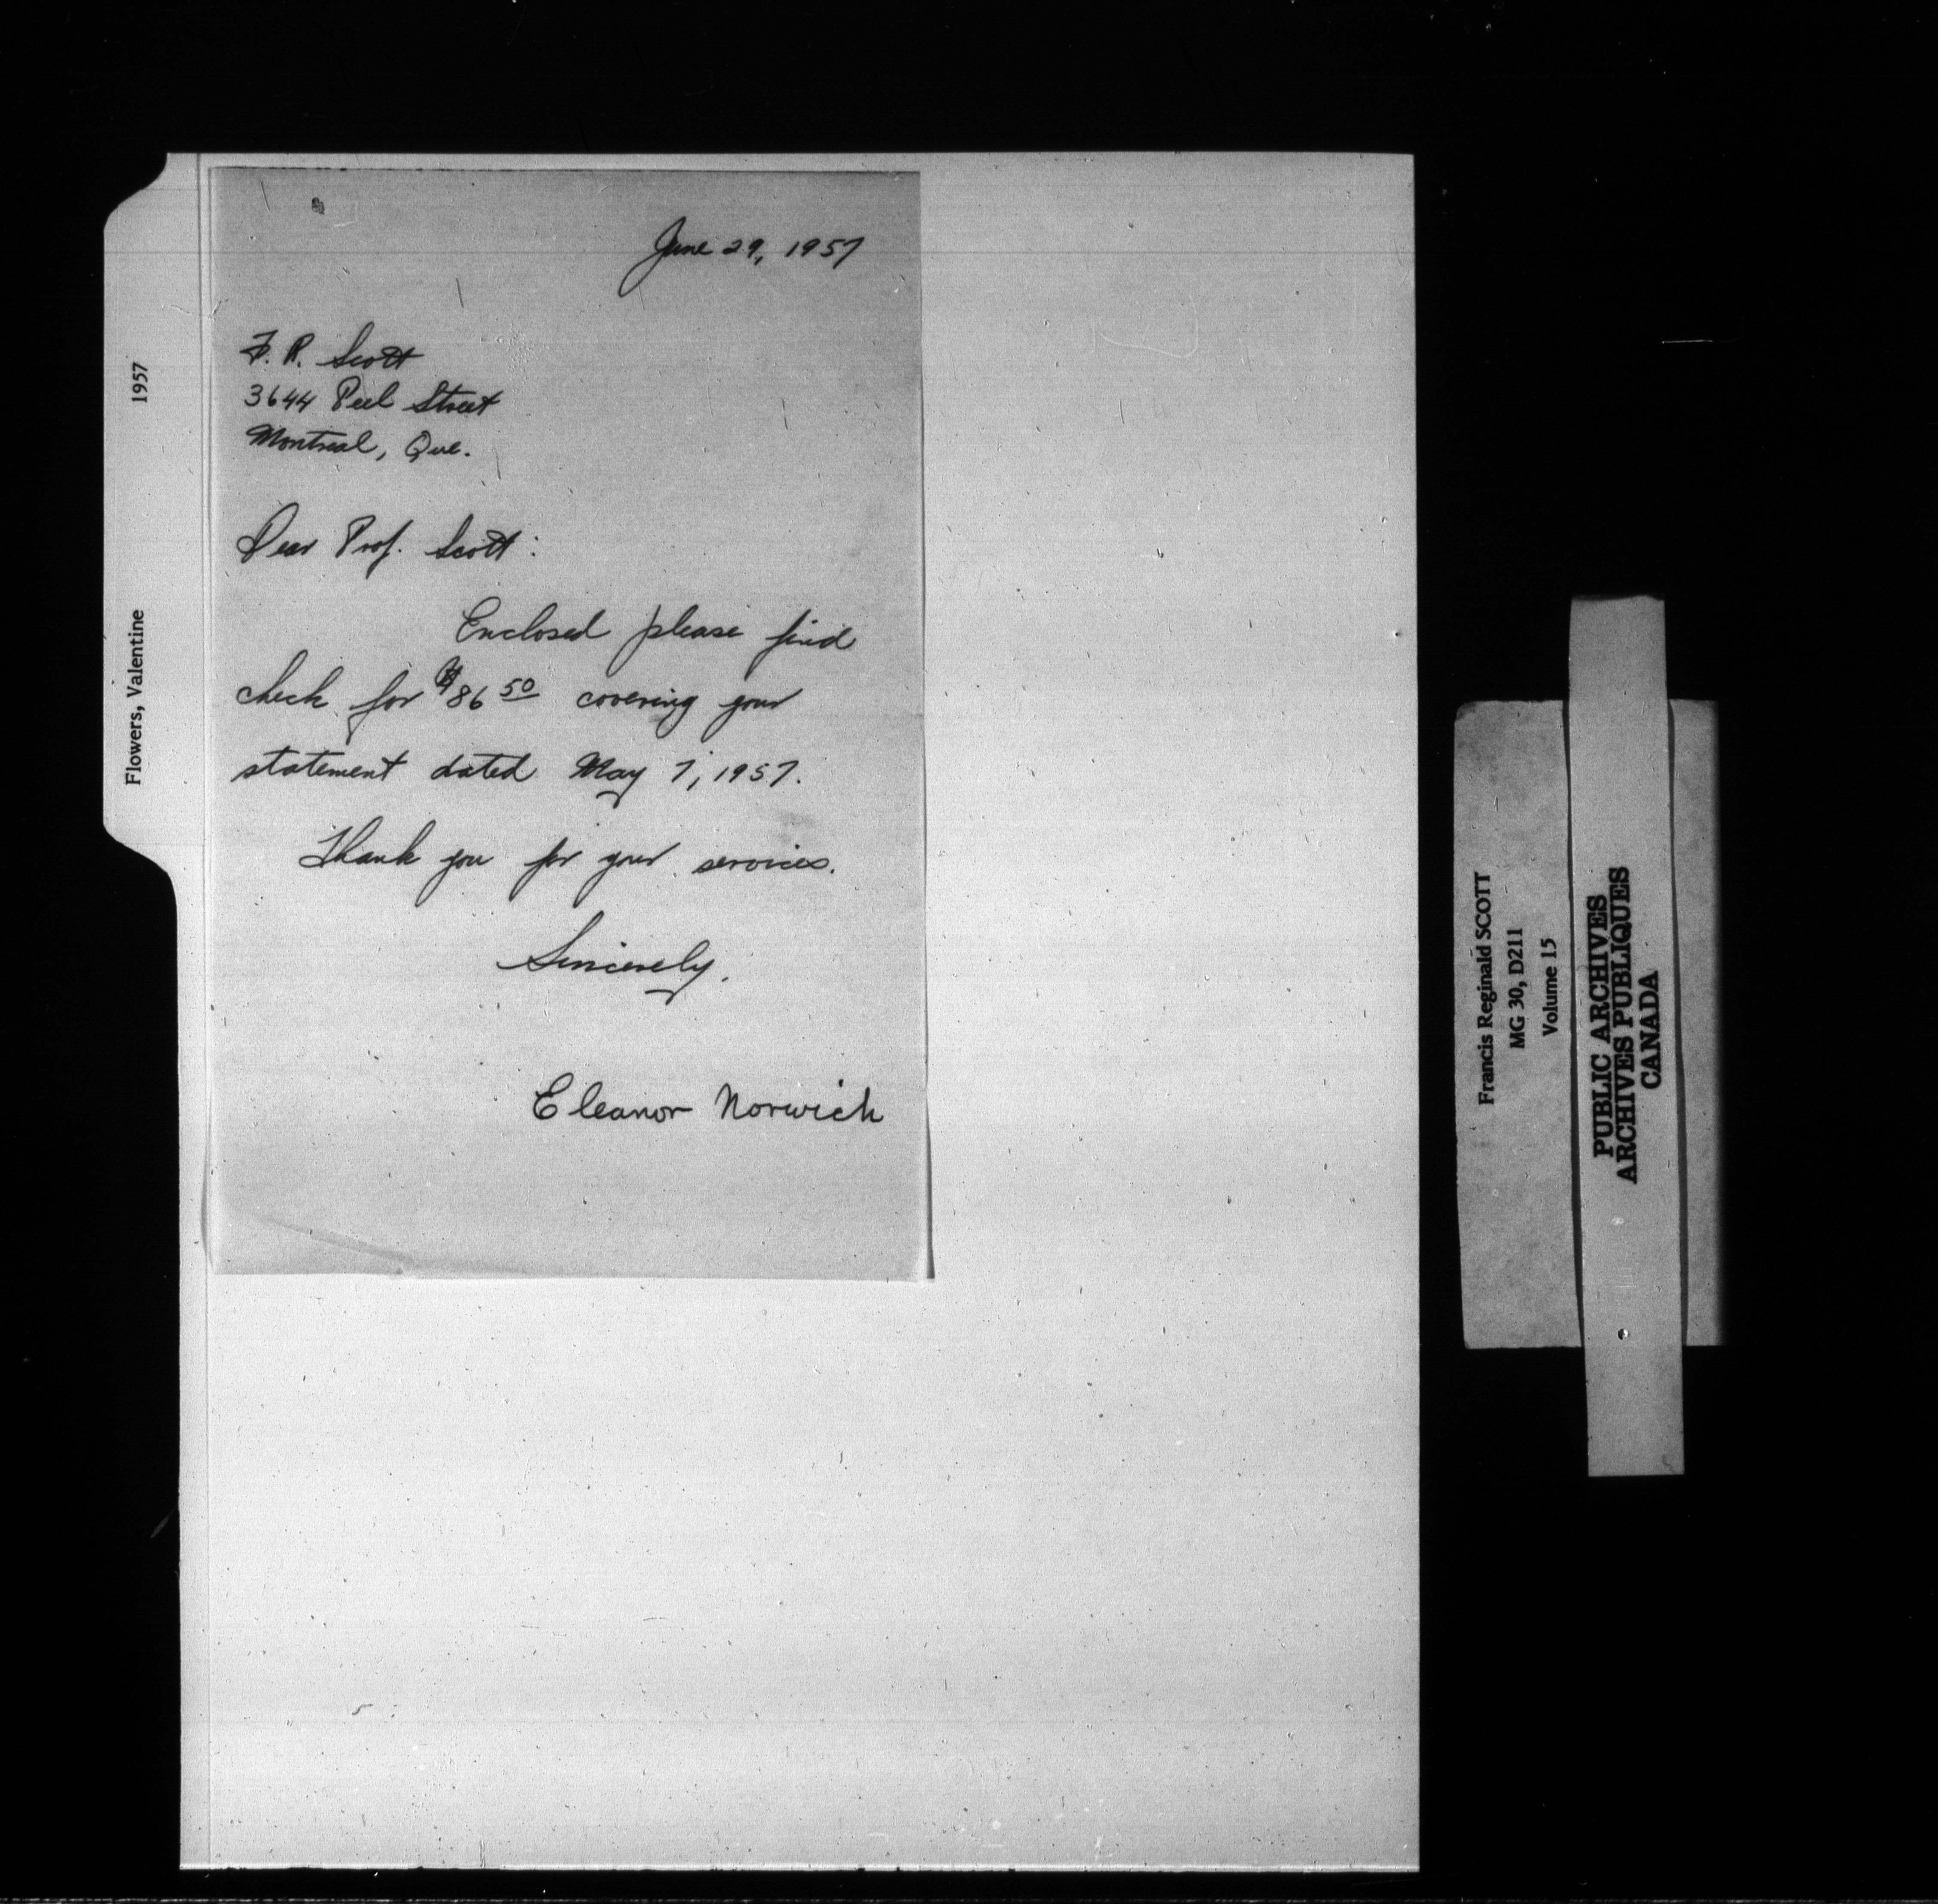 June 29, 1957
F. R. Scott
3644 Peel Street
Montreal, Que.
Dear Prof. Scott:
Enclosed please find
check for $86 50 covering your
statement dated May 7, 1957.
Thank you for your services.
Sincerely,
Eleanor Norwich
Flowers, Valentine 1957
Francis Reginald SCOTT
MG 30, D211
Volume 15
PUBLIC ARCHIVES
ARCHIVES PUBLIQUES
CANADA